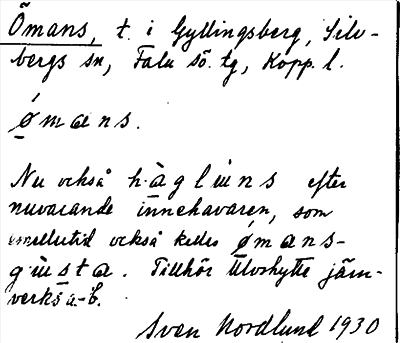 Ömans, t. i Gyllingsberg, Silv-
bergs sn, Falu sö. tg, Kopp. l.
ømans.
Nu också hàglùns efter
nuvarande innehavaren, som
emellertid också kallas ømans-
gùsta. Tillhör Ulvshytte järn-
verks a.-b.
Sven Nordlund 1930